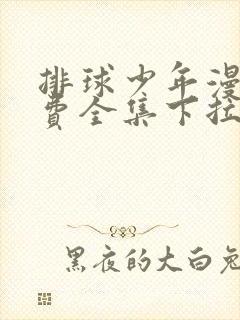 排球少年漫
费全集下拉
黑夜的大白兔